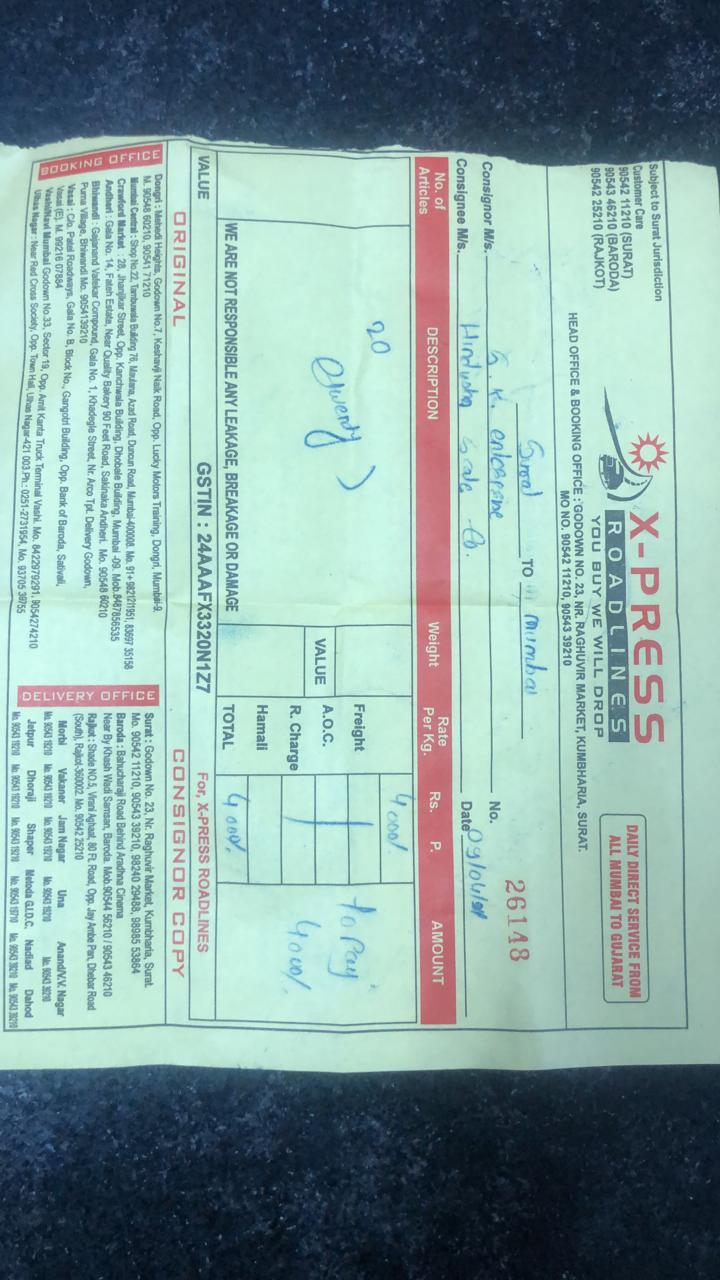 Subject to Surat Jurisdiction
Customer Care
90542 11210 (SURAT)
90543 46210 (BARODA)
90542 25210 (RAJKOT)
X-PRESS
ROADLINES
YOU BUY WE WILL DROP
DAILY DIRECT SERVICE FROM
ALL MUMBAI TO GUJARAT
HEAD OFFICE & BOOKING OFFICE : GODOWN NO. 23, NR. RAGHUVIR MARKET, KUMBHARIA, SURAT.
MO NO. 90542 11210, 90543 39210
TO Mumbai
No. 26148
Consignor M/s. S. K. enterprise
Date
Consignee M/s. Hindustan Sale Co.
No. of Articles DESCRIPTION Weight Rate Per Kg. Rs. P. AMOUNT
20
4000/.
Freight
to Pay
4000/.
A.O.C.
VALUE
R. Charge
Hamali
WE ARE NOT RESPONSIBLE ANY LEAKAGE, BREAKAGE OR DAMAGE
TOTAL 4000/.
VALUE
GSTIN : 24AAAFX3320N1Z7
For, X-PRESS ROADLINES
ORIGINAL
CONSIGNOR COPY
BOOKING OFFICE
Dongri : Mehedi Heights, Godown No.7, Keshavji Naik Road, Opp. Lucky Motors Training, Dongri, Mumbai-9.
M. 90548 60210, 90541 71210
Mumbai Central : Shop No.22, Tambawala Building 76, Maulana, Azad Road, Duncun Road, Mumbai-400008. Mo. 91+ 9821211951, 83697 35158
Crawford Market : 28, Jhanjikar Street, Opp. Kanchwala Building, Dhobale Building, Mumbai -09. Mob.8487856535
Andheri : Gala No. 14, Fateh Estate, Near Quality Bakery 90 Feet Road, Sakinaka Andheri. Mo. 90548 60210
Bhiwandi : Gajanand Vafekar Compound, Gala No. 1, Khadegle Street, Nr. Arco Tpt. Delivery Godown,
Purna Village, Bhiwandi Mo. 9054139210
Vasai : C/o. Patel Roadways, Gala No. B, Block No., Gangotri Building, Opp. Bank of Baroda, Sativali,
Vasai (E). M. 99216 07884
Vashi/Navi Mumbai Godown No.33, Sector 19, Opp. Amit Kanta Truck Terminal Vashi. Mo. 8422979291, 9054274210
Ulhas Nagar : Near Red Cross Society, Opp. Town Hall, Ulhas Nagar-421 003.Ph.: 0251-2731954, Mo. 93705 39755
DELIVERY OFFICE
Surat : Godown No. 23, Nr. Raghuvir Market, Kumbharia, Surat.
Mo. 90542 11210, 90543 39210, 98240 29488, 98985 53864
Baroda : Bahucharaji Road Behind Aradhna Cinema
Near By Khash Wadi Samsan, Baroda. Mob.90544 56210 / 90543 46210
Rajkot : Shade NO.5, Virani Aghaat, 80 Ft. Road, Opp. Jay Ambe Pan, Dhebar Road
(South), Rajkot-360002. Mo. 90542 25210
Morbi Vakaner Jam Nagar Una Anand/V.V. Nagar
Jetpur Dhoraji Shaper Metoda G.I.D.C. Nadiad Dahod